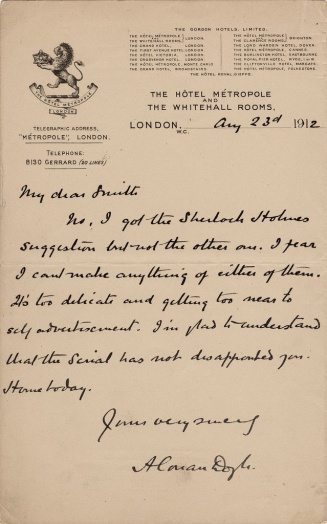 THE GORDON HOTELS, LIMITED.
THE HÔTEL MÉTROPOLE
THE WHITEHALL ROOMS, LONDON.
THE GRAND HOTEL, LONDON.
THE FIRST AVENUE HOTEL, LONDON.
THE HÔTEL VICTORIA, LONDON.
THE GROSVENOR HOTEL, LONDON.
THE HÔTEL MÉTROPOLE, MONTE CARLO
THE GRAND HOTEL, BROADSTAIRS.
THE HÔTEL MÉTROPOLE,
THE CLARENCE ROOMS, BRIGHTON.
THE LORD WARDEN HOTEL, DOVER.
THE HÔTEL MÉTROPOLE, CANNES.
THE BURLINGTON HOTEL, EASTBOURNE.
THE ROYAL PIER HOTEL, RYDE,
THE CLIFTONVILLE HOTEL, MARGATE.
THE HÔTEL MÉTROPOLE, FOLKESTONE.
THE HÔTEL ROYAL, DIEPPE.
THE HÔTEL MÉTROPOLE
LONDON
THE HÔTEL MÉTROPOLE
AND
THE WHITEHALL ROOMS,
TELEGRAPHIC ADDRESS,
"MÉTROPOLE", LONDON.
LONDON, Aug 23d 1912
W.C.
TELEPHONE:
8130 GERRARD (20 LINES)
My dear Smith
No, I got the Sherlock Holmes
suggestion but not the other one. I fear
I cant make anything of either of them.
It's too delicate and getting too near to
self advertisement. I'm glad to understand
that the Serial has not disappointed you.
Home today.
Yours very sincerely
A Conan Doyle.